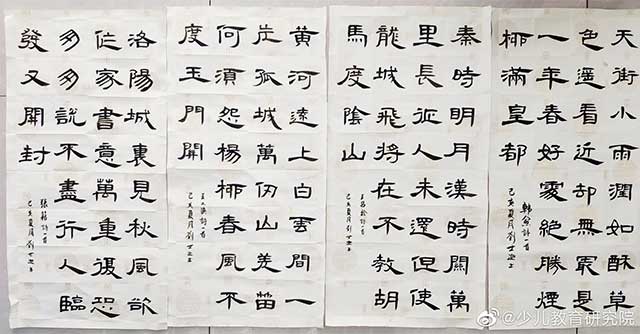 天街小雨潤如酥草
色遥看近却無最是
一年春好處絕勝煙
柳滿皇都
韓愈詩一首
己亥夏月劉
秦時明月漢時關萬
里長征人未還但使
龍城飛將在不教胡
馬度陰山
王昌齡詩一首
己亥夏月劉
黄河遠上白雲間一
片孤城萬仞山羌笛
何須怨楊柳春風不
度玉門関
王之渙詩一首
己亥夏月劉
洛陽城裏見秋風欲
作家書意萬重復恐
匆匆說不盡行人臨
發又開封
張籍詩一首
己亥夏月劉
@少儿教育研究院